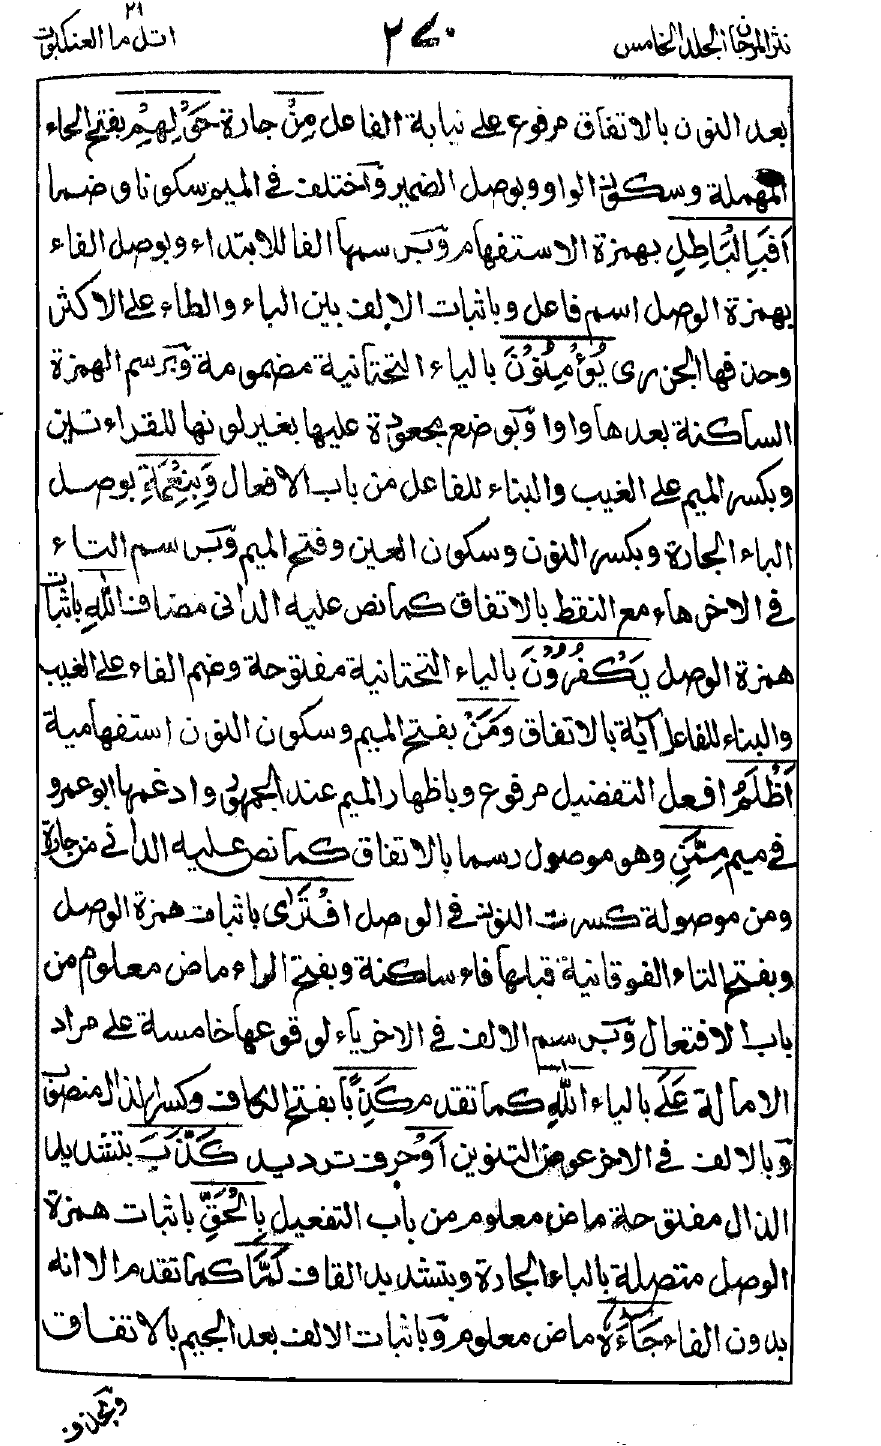 نثر المرجان المجلد الخامس
٢٧٠
اتل ما العنكبوت ٢١
بعد النون بالاتفاق مرفوع على نيابة الفاعل مِنْ جارة حَوْلِهِمْ بفتح الحاء
المهملة وسكون الواو وبوصل الضمير وٓاختلف فى الميم سكونا وضما
اَفَبِالْبَاطِلِ بهمزة الاستفهام وٓبرسمها الفا للابتداء وبوصل الفاء
بهمزة الوصل اسم فاعل وباثبات الالف بين الباء والطاء على الاكثر
وحذفها الجزرى يُؤْمِنُوْنَ بالياء التحتانية مضمومة وٓبرسم الهمزة
الساكنة بعدها واوا وٓبوضع مجعودة عليها بغير لونها للقراءتين
وبكسر الميم على الغيب والبناء للفاعل من باب الافعال وَبِنِعْمَةِ بوصل
الباء الجارة وبكسر النون وسكون العين وفتح الميم وٓبرسم التاء
فى الاخر هاء مع النقط بالاتفاق كما نص عليه الدانى مضاف اللهِ باثبات
همزة الوصل يَكْفُرُوْنَ بالياء التحتانية مفتوحة وضم الفاء على الغيب
والبناء للفاعل آية بالاتفاق وَمَنْ بفتح الميم وسكون النون استفهامية
اَظْلَمُ افعل التفضيل مرفوع وباظهار الميم عند الجمهور وادغمها ابو عمرو
فى ميم مِمَّنِ وهو موصول رسما بالاتفاق كما نص عليه الدانى من جارة
ومن موصولة كسرت النون فى الوصل افْتَرٰى باثبات همزة الوصل
وبفتح التاء الفوقانية قبلها فاء ساكنة وبفتح الراء ماض معلوم من
باب الافتعال وٓبرسم الالف فى الاخر ياء لوقوعها خامسة على مراد
الامالة عَلَى بالياء اللهِ كما تقدم كَذِبًا بفتح الكاف وكسر الذال منصوب
وٓبالالف فى الاخر عوض التنوين اَوْ حرف ترديد كَذَّبَ بتشديد
الذال مفتوحة ماض معلوم من باب التفعيل بِالْحَقِّ باثبات همزة
الوصل متصلة بالباء الجارة وبتشديد القاف لَمَّا كما تقدم الا انه
بدون الفاء جَآءَهٗ ماض معلوم وٓباثبات الالف بعد الجيم بالاتفاق
وبحذف